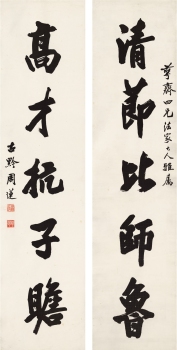 清節比師魯
莘齋四兄法家大人雅屬
高才抗子瞻
古黟周蓮